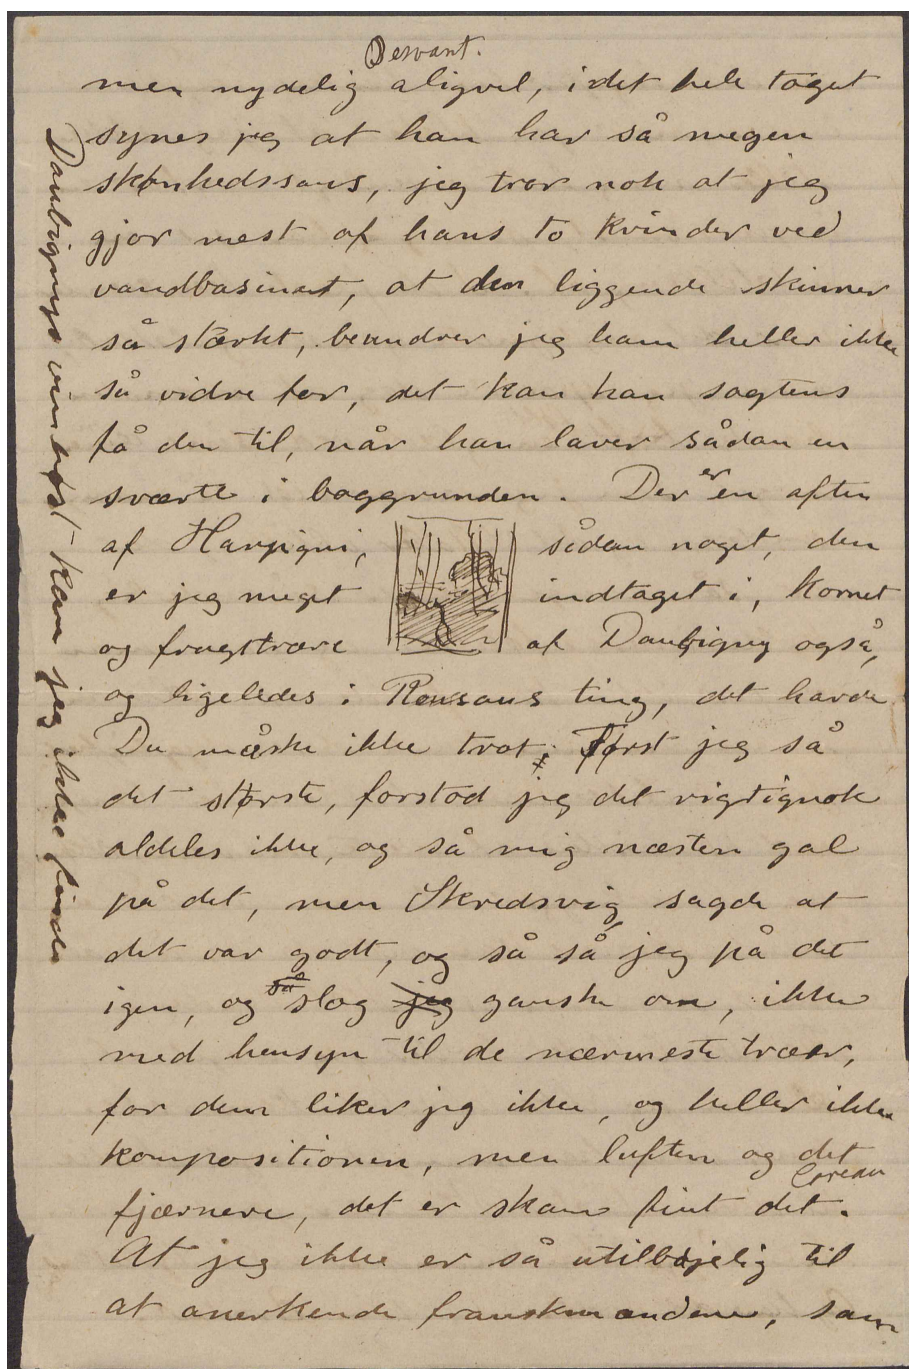 Dewant.
men nydelig aligvel, i det hele taget
synes jeg at han har så megen
skønhedssans, jeg tror nok at jeg
gjør mest af hans to Kvinder ved
vandbasinet, at den liggende skinner
så stærkt, beundrer jeg ham heller ikke
så vidre for, det kan han sagtens
få den til, når han laver sådan en
sværte i baggrunden. Der er en aften
af Harpigni, sådan noget, den
er jeg meget indtaget i, Kornet
og frugttrære af Daubigny også,
og ligeledes i Rousaus ting, det havde
Du måske ikke trot; Først jeg så
det største, forstod jeg det rigtignok
aldeles ikke, og så mig næsten gal
på det, men Skredsvig sagde at
det var godt, og så så jeg på det
igen, og slog jeg ganske om, ikke
med hensyn til de nærmeste træer,
for dem liker jeg ikke, og heller ikke
kompositionen, men luften og det
fjærnere, det er skam fint det.
At jeg ikke er så utilbøjelig til
at anerkende franskmændene, sam
Daubignys vinhøst kan jeg ikke finde